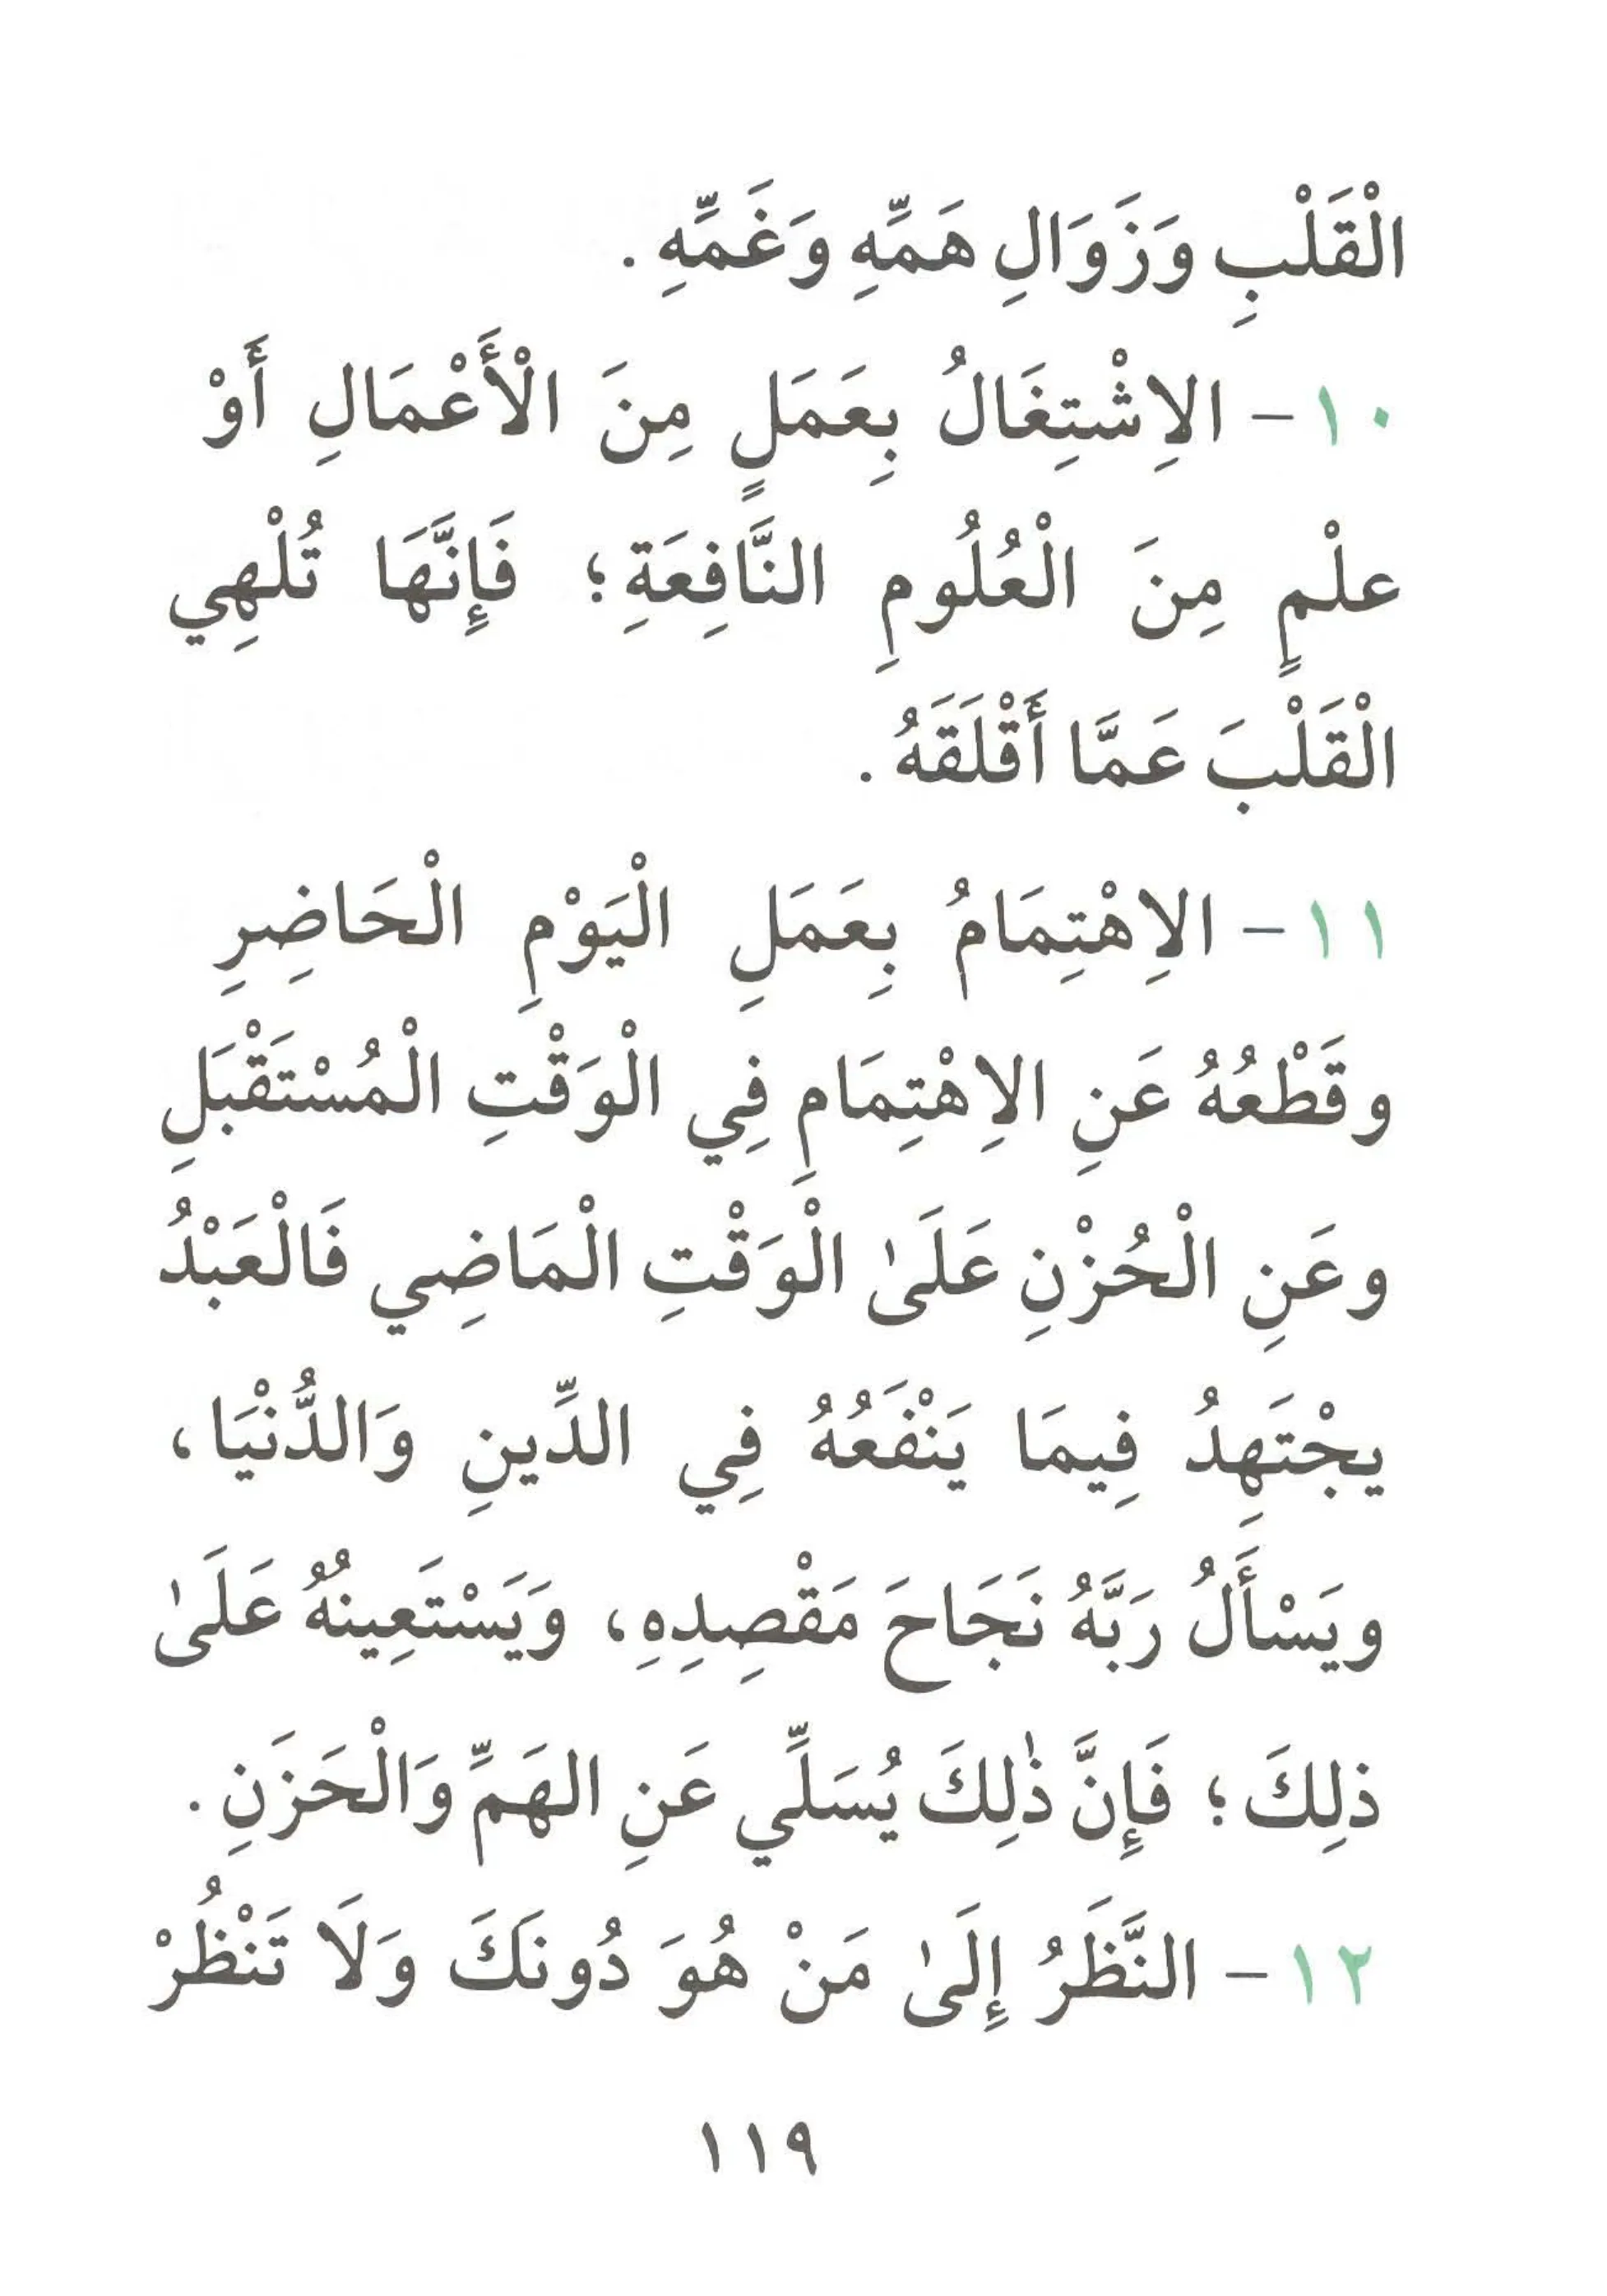 الْقَلْبِ وَزَوَالِ هَمِّهِ وَغَمِّهِ .
١٠ - الِاشْتِغَالُ بِعَمَلٍ مِنَ الْأَعْمَالِ أَوْ
علْمٍ مِنَ الْعُلُومِ النَّافِعَةِ؛ فَإِنَّهَا تُلْهِي
الْقَلْبَ عَمَّا أَقْلَقَهُ .
١١ - الِاهْتِمَامُ بِعَمَلِ الْيَوْمِ الْحَاضِرِ
وقَطْعُهُ عَنِ الِاهْتِمَامِ فِي الْوَقْتِ الْمُسْتَقْبَلِ
وعَنِ الْحُزْنِ عَلَىٰ الْوَقْتِ الْمَاضِي فَالْعَبْدُ
يجْتَهِدُ فِيمَا يَنْفَعُهُ فِي الدِّينِ وَالدُّنْيَا،
ويَسْأَلُ رَبَّهُ نَجَاحَ مَقْصِدِهِ، وَيَسْتَعِينُهُ عَلَىٰ
ذلِكَ؛ فَإِنَّ ذٰلِكَ يُسَلِّي عَنِ الهَمِّ وَالْحَزَنِ .
١٢ - النَّظَرُ إِلَىٰ مَنْ هُوَ دُونَكَ وَلَا تَنْظُرْ
١١٩